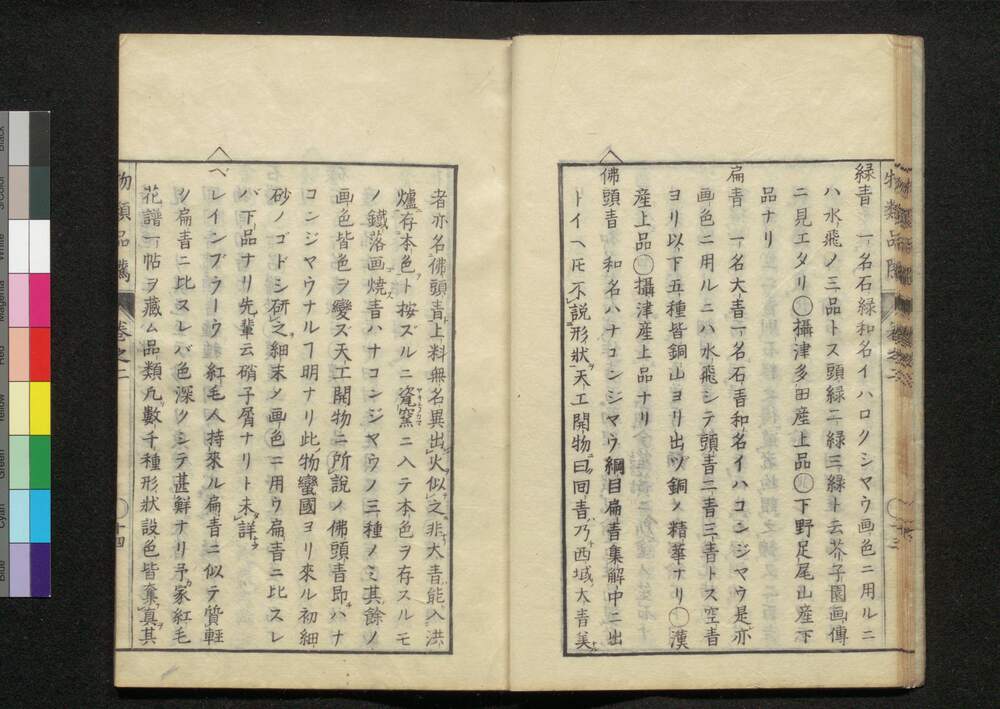 緑青 一名石緑和名イハロクシヤウ画色ニ用ルニ
ハ水飛ノ三品トス頭緑二緑三緑ト云芥子園画傳
ニ見エタリ 攝津多田産上品 下野足尾山産下
品ナリ
扁青 一名大青一名石青和名イハコンジヤウ是亦
画色ニ用ルニハ水飛シテ頭青二青三青トス空青
ヨリ以下五種皆銅山ヨリ出ヅ銅ノ精華ナリ 漢
産上品 攝津産上品ナリ
佛頭青 和名ハナコンジヤウ綱目扁青集解中ニ出
トイヘ𪜈不説形狀天工開物曰囘青乃西域大青美
者亦名佛頭青上料無名異出火似之非大青能入洪
爐存本色ト按ズルニ瓷窯ニ入テ本色ヲ存スルモ
ノ鐵落画燒青ハナコンジヤウノ三種ノミ其餘ノ
画色皆色ヲ變ズ天工開物ニ所説ノ佛頭青即ハナ
コンジヤウナルヿ明ナリ此物蠻國ヨリ來ル初細
砂ノゴトシ研之細末ノ画色ニ用ウ扁青ニ比スレ
バ下品ナリ先輩云硝子屑ナリト未詳
ベレインブラーウ 紅毛人持來ル扁青ニ似テ質軽
シ扁青ニ比スレバ色深クシテ甚鮮ナリ予家紅毛
花譜一帖ヲ藏ム品類凡數千種形狀設色皆奪真其
物類品隲
巻之二
十四